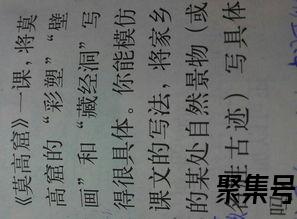 《莫高窟》一课，将莫
高窟的“彩塑”“壁
画”和“藏经洞”写
得很具体。你能模仿
课文的写法，将家乡
的某处自然景物（或
胜古迹）写具体
吗
聚集号